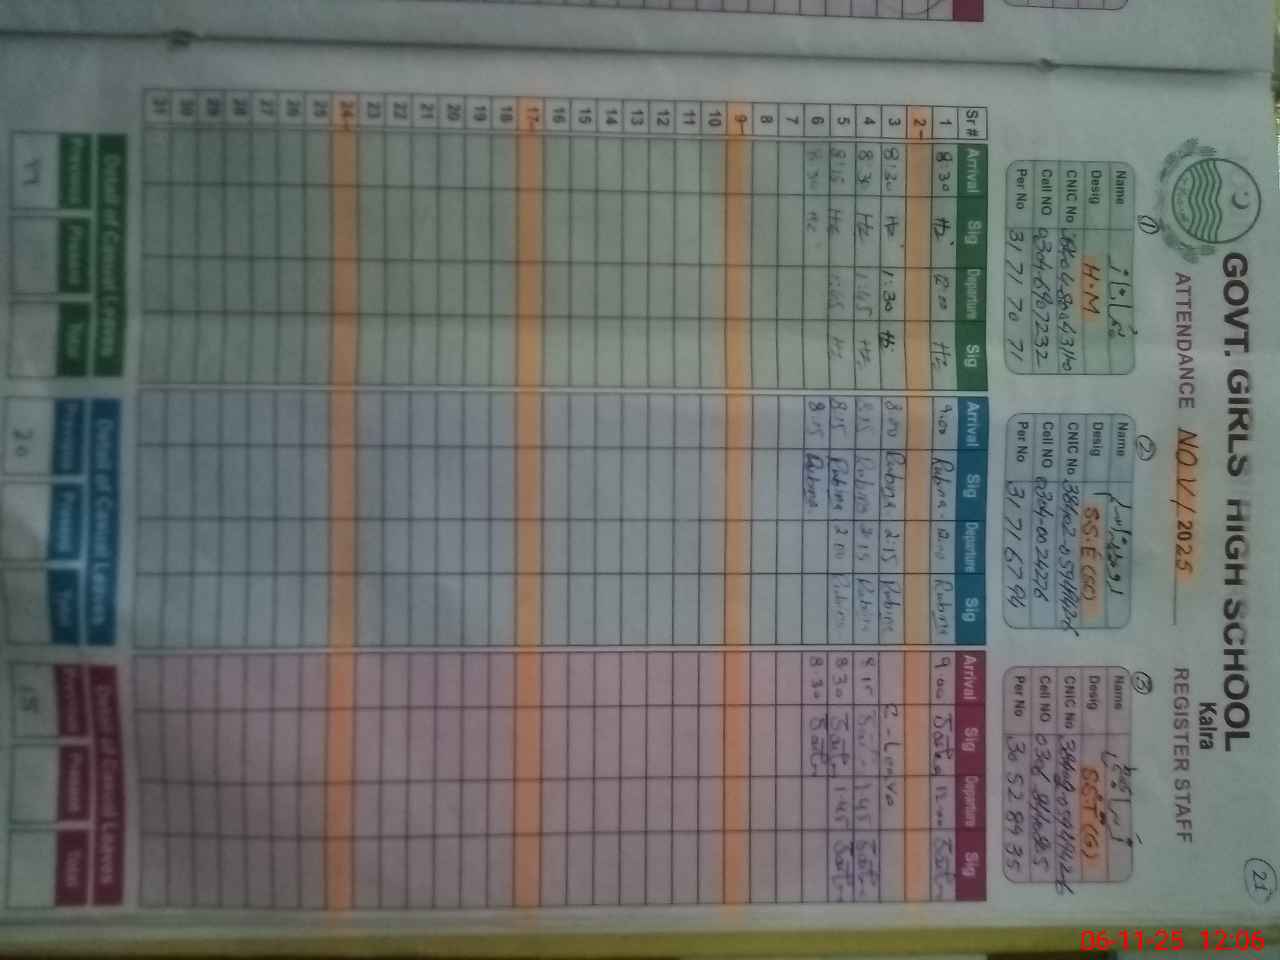 GOVT. GIRLS HIGH SCHOOL
Kalra
21
ATTENDANCE NOV/2025 REGISTER STAFF
1
Name
Desig H.M
CNIC No
Cell NO 0304-6907232
Per No 31717071
2
Name روبینہ یاسمین
Desig S.S.E (SC)
CNIC No
Cell NO 0304-0024276
Per No 31716794
3
Name
Desig SST (G)
CNIC No
Cell NO
Per No 30528935
Sr# Arrival Sig Departure Sig Arrival Sig Departure Sig Arrival Sig Departure Sig
1 8:30 Hz 12:00 Hz 9:00 Rubina 12:00 Rubina 9:00 12:00
2
3 8:30 Hz 1:30 Hz 8:00 Rubina 2:15 Rubina C-Leave
4 8:30 Hz 1:45 Hz 8:15 Rubina 2:15 Rubina 8:15 1:45
5 8:15 Hz 1:45 Hz 8:15 Rubina 2:00 Rubina 8:30 1:45
6 8:30 Hz 8:15 Rubina 8:30
7
8
9
10
11
12
13
14
15
16
17
18
19
20
21
22
23
24
25
26
27
28
29
30
31
Detail of Casual Leaves Detail of Casual Leaves Detail of Casual Leaves
Previous Present Total Previous Present Total Previous Present Total
20 15
06-11-25 12:06